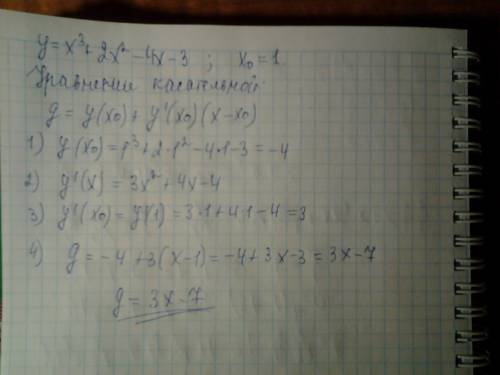 y = x³ + 2x² - 4x - 3 ; x₀ = 1.
Уравнение касательной:
y = y(x₀) + y'(x₀)(x - x₀)
1) y(x₀) = 1³ + 2·1² - 4·1 - 3 = -4
2) y'(x) = 3x² + 4x - 4
3) y'(x₀) = y'(1) = 3·1 + 4·1 - 4 = 3
4) y = -4 + 3(x - 1) = -4 + 3x - 3 = 3x - 7
y = 3x - 7